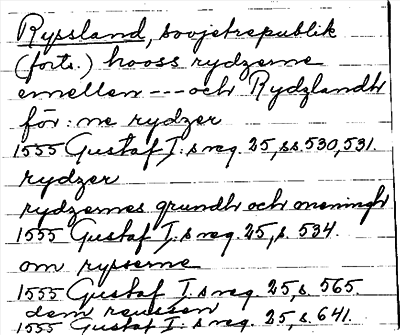 Ryssland, sovjetrepublik
(forts.) hooss rydzerne
emellen --- och Rydzlandh
för: ne rydzer
1555 Gustaf I:s reg. 25, ss. 530, 531.
rydzer
rydzernes grundh och meningh
1555 Gustaf I:s reg. 25, s. 534.
om rysserne
1555 Gustaf I:s reg. 25, s. 565.
dem reussen
1555 Gustaf I:s reg. 25, s. 641.